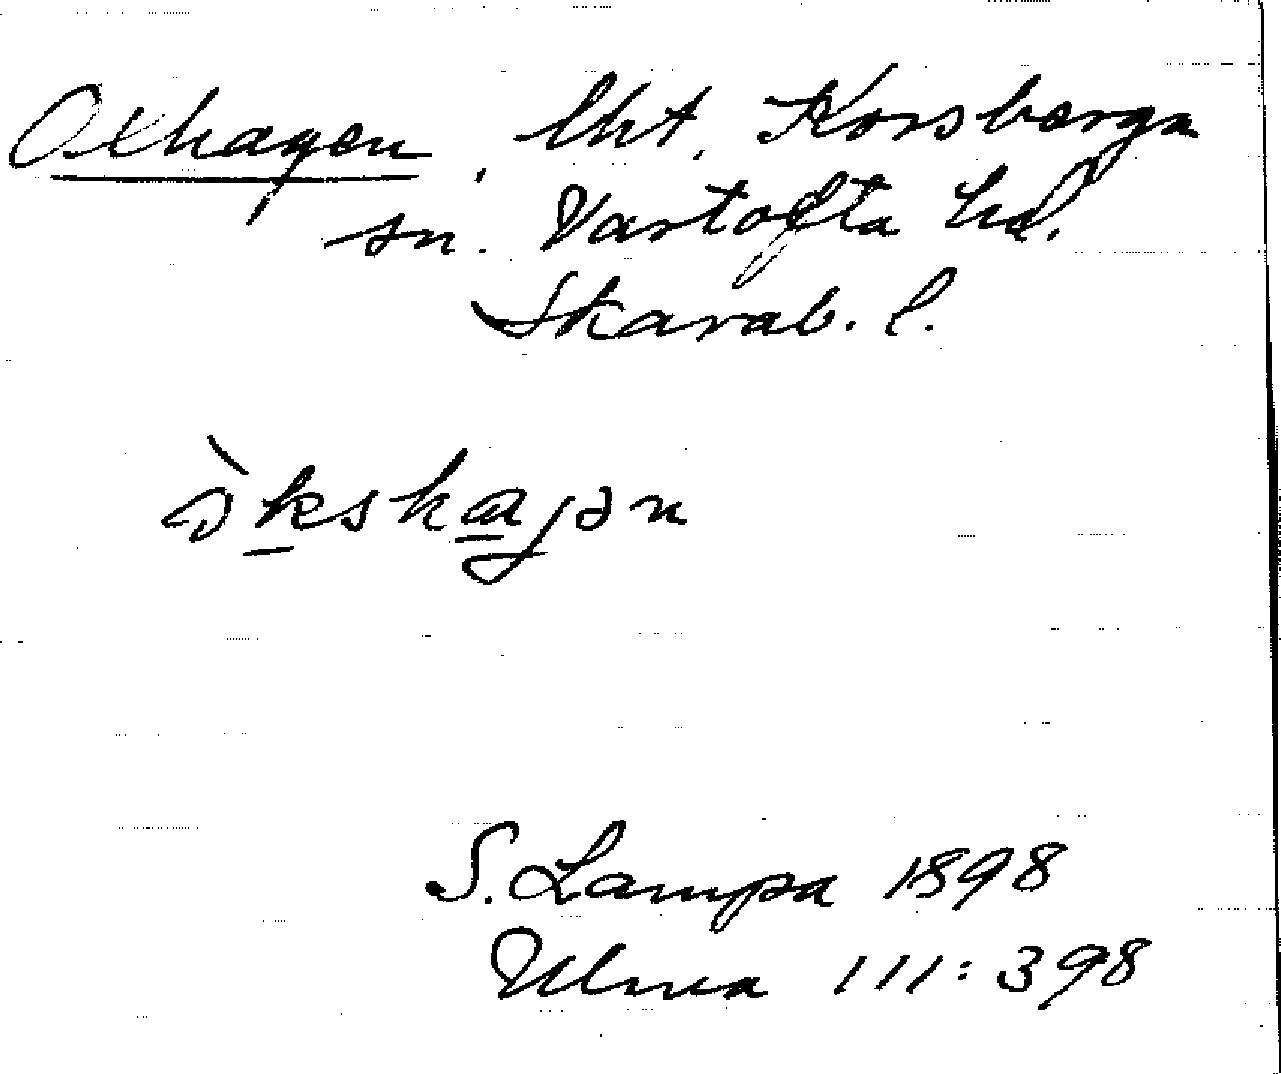 Oxhagen, lht, Korsberga
sn. Vartofta hd.
Skarab. l.
S. Lampa 1898
Ulma 111:398